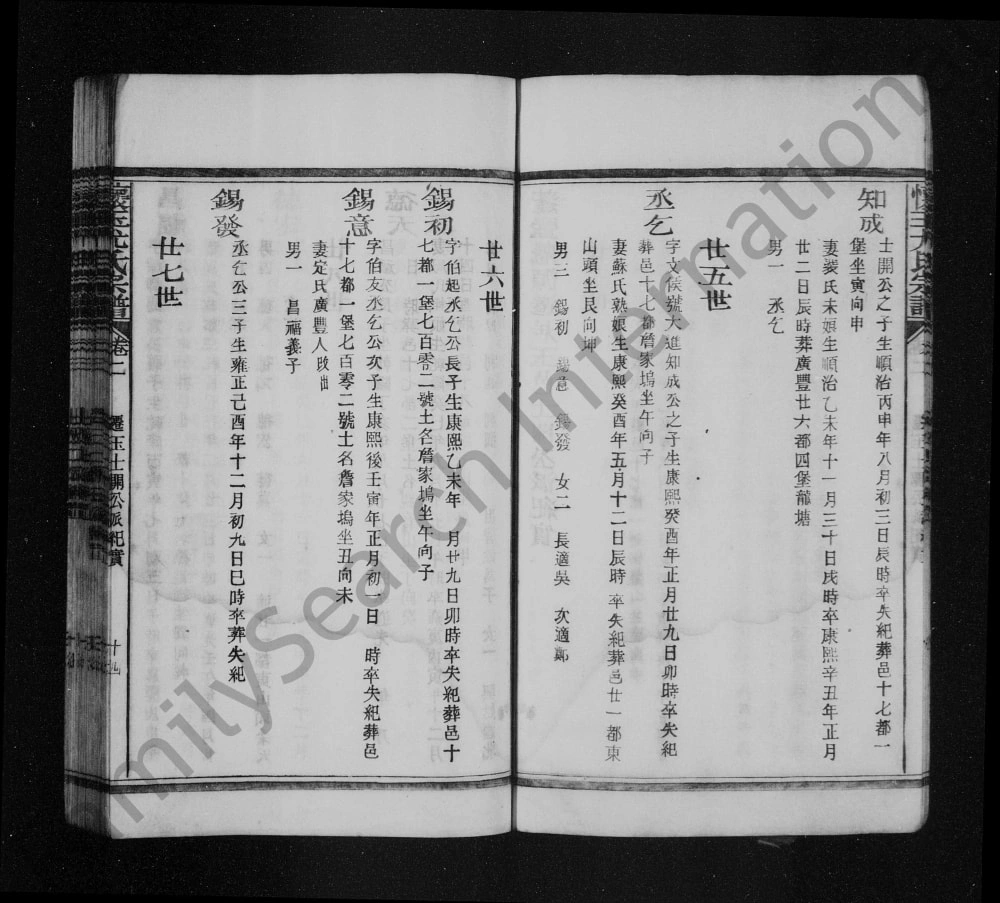 知成
士開公之子生順治丙申年八月初三日辰時卒失紀葬邑十七都一
堡坐寅向申
妻裴氏未娘生順治乙未年十一月三十日戌時卒康熙辛丑年正月
廿二日辰時葬廣豐廿六都四堡龍塘
男一 丞乞
廿五世
丞乞
字文候號大進知成公之子生康熙癸酉年正月廿九日卯時卒失紀
葬邑十七都詹家塢坐午向子
妻蘇氏熟娘生康熙癸酉年五月十二日辰時 卒失紀葬邑廿一都東
山頭坐艮向坤
男三 錫初 錫意 錫發 女二 長適吳 次適鄭
廿六世
錫初
字伯起丞乞公長子生康熙乙未年 月廿九日卯時卒失紀葬邑十
七都一堡七百零二號土名詹家塢坐午向子
錫意
字伯友丞乞公次子生康熙後壬寅年正月初一日 時卒失紀葬邑
十七都一堡七百零二號土名詹家塢坐丑向未
妻定氏廣豐人改出
男一 昌福義子
錫發
丞乞公三子生雍正己酉年十二月初九日巳時卒葬失紀
廿七世
氏宗譜
卷一
遷玉士開公派紀實
十四
FamilySearch International